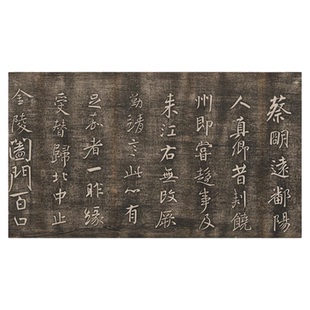 蔡明遠鄱陽
人真卿昔刺饒
州即嘗趨事及
来江右無改厥
勤靖言此心有
足嘉者一昨緣
受替歸北中止
金陵闔門百口